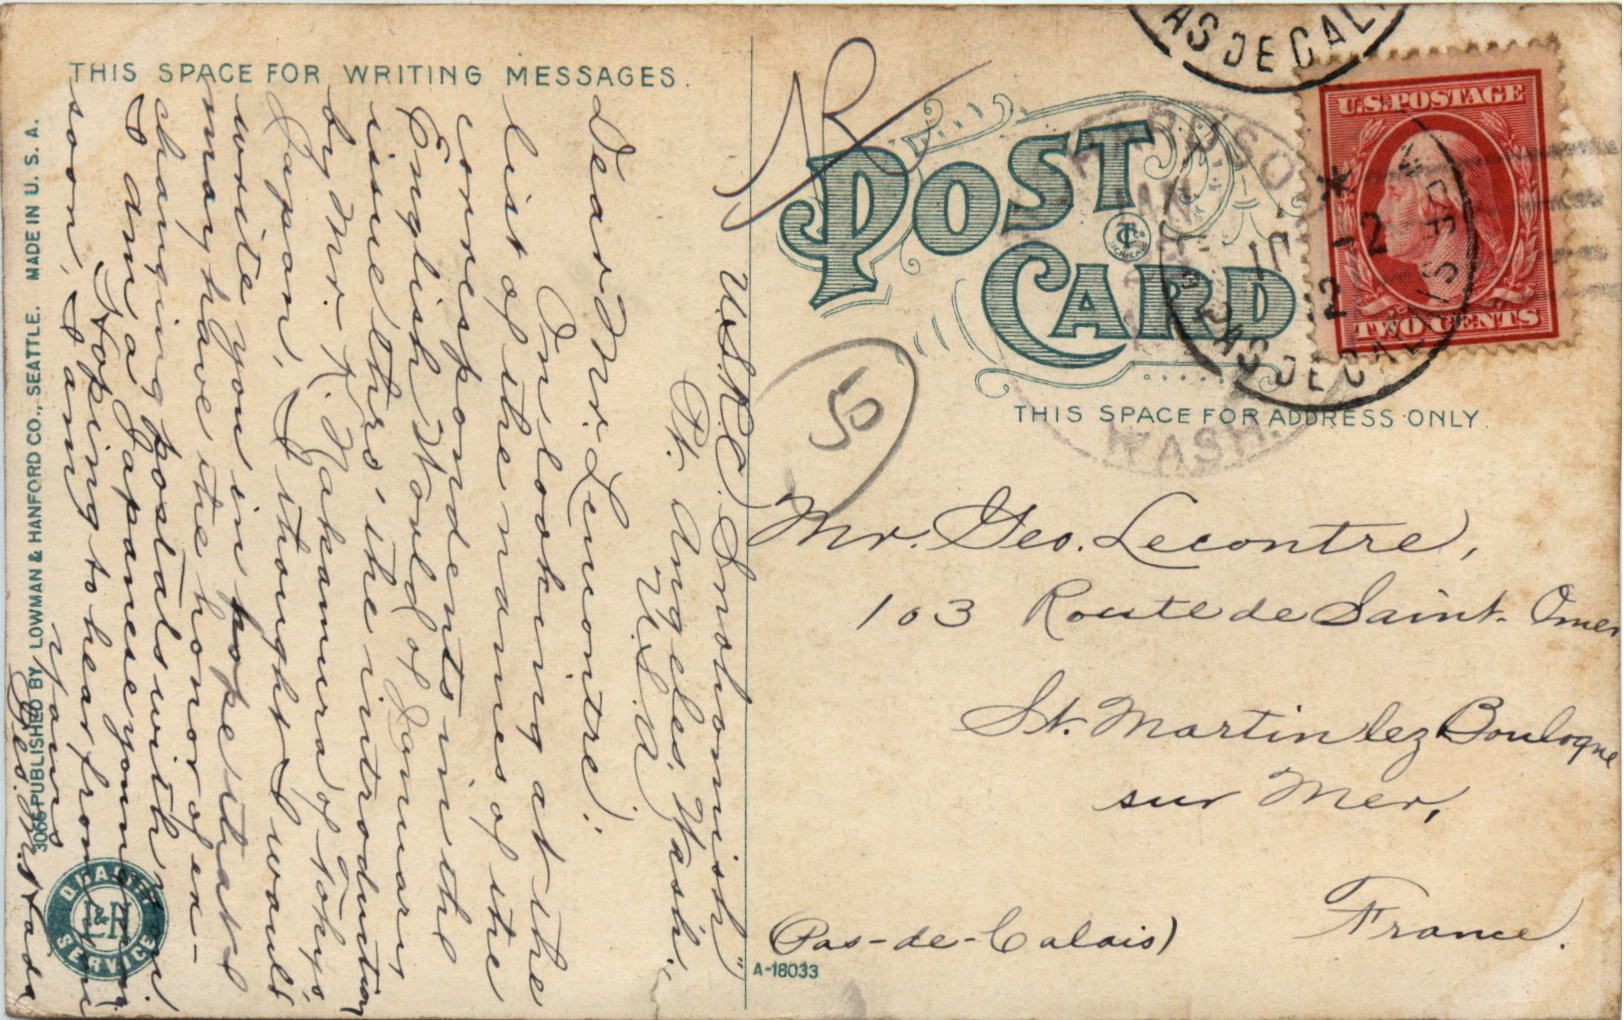 THIS SPACE FOR WRITING MESSAGES.
POST
CARD
THIS SPACE FOR ADDRESS ONLY.
U.S. POSTAGE
TWO CENTS
PAS DE CAL
PAS DE CALAIS
WASH.
55
U.S.R.C. "Snohomish"
Pt. Angeles, Wash.,
U.S.A.
Dear Mr. Lecontre:
On looking at the
list of the names of the
correspondents in the
English World of January
issue thro' the introduction
by Mr. K. Nakamura of Tokyo,
Japan, I thought I would
write you in hope that I
may have the honor of ex-
changing postals with you
I am a Japanese young man.
Hoping to hear from you
soon, I am,
Yours
Geo.
Mr. Geo. Lecontre,
103 Route de Saint-Omer
St. Martin lez Boulogne
sur Mer,
(Pas-de-Calais)
France.
3066 PUBLISHED BY LOWMAN & HANFORD CO., SEATTLE. MADE IN U.S.A.
QUALITY
L&H
SERVICE
A-18033